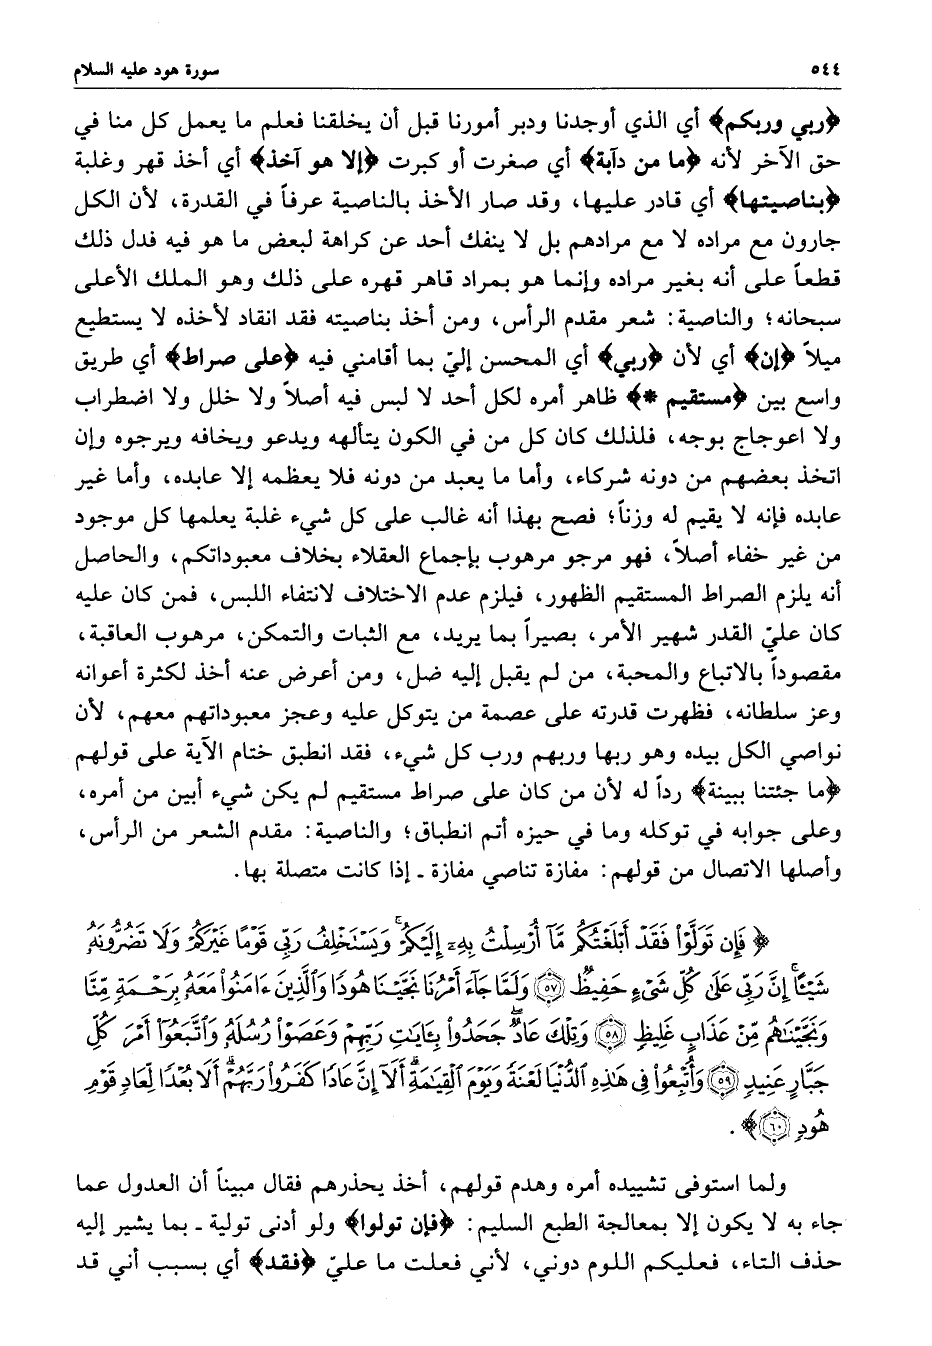 ٥٤٤ سورة هود عليه السلام
﴿ربي وربكم﴾ أي الذي أوجدنا ودبر أمورنا قبل أن يخلقنا فعلم ما يعمل كل منا في
حق الآخر لأنه ﴿ما من دآبة﴾ أي صغرت أو كبرت ﴿إلا هو آخذ﴾ أي أخذ قهر وغلبة
﴿بناصيتها﴾ أي قادر عليها، وقد صار الأخذ بالناصية عرفاً في القدرة، لأن الكل
جارون مع مراده لا مع مرادهم بل لا ينفك أحد عن كراهة لبعض ما هو فيه فدل ذلك
قطعاً على أنه بغير مراده وإنما هو بمراد قاهر قهره على ذلك وهو الملك الأعلى
سبحانه؛ والناصية: شعر مقدم الرأس، ومن أخذ بناصيته فقد انقاد لأخذه لا يستطيع
ميلاً ﴿إن﴾ أي لأن ﴿ربي﴾ أي المحسن إليّ بما أقامني فيه ﴿على صراط﴾ أي طريق
واسع بين ﴿مستقيم *﴾ ظاهر أمره لكل أحد لا لبس فيه أصلاً ولا خلل ولا اضطراب
ولا اعوجاج بوجه، فلذلك كان كل من في الكون يتألهه ويدعو ويخافه ويرجوه وإن
اتخذ بعضهم من دونه شركاء، وأما ما يعبد من دونه فلا يعظمه إلا عابده، وأما غير
عابده فإنه لا يقيم له وزناً؛ فصح بهذا أنه غالب على كل شيء غلبة يعلمها كل موجود
من غير خفاء أصلاً، فهو مرجو مرهوب بإجماع العقلاء بخلاف معبوداتكم، والحاصل
أنه يلزم الصراط المستقيم الظهور، فيلزم عدم الاختلاف لانتفاء اللبس، فمن كان عليه
كان عليّ القدر شهير الأمر، بصيراً بما يريد، مع الثبات والتمكن، مرهوب العاقبة،
مقصوداً بالاتباع والمحبة، من لم يقبل إليه ضل، ومن أعرض عنه أخذ لكثرة أعوانه
وعز سلطانه، فظهرت قدرته على عصمة من يتوكل عليه وعجز معبوداتهم معهم، لأن
نواصي الكل بيده وهو ربها وربهم ورب كل شيء، فقد انطبق ختام الآية على قولهم
﴿ما جئتنا ببينة﴾ رداً له لأن من كان على صراط مستقيم لم يكن شيء أبين من أمره،
وعلى جوابه في توكله وما في حيزه أتم انطباق؛ والناصية: مقدم الشعر من الرأس،
وأصلها الاتصال من قولهم: مفازة تناصي مفازة ـ إذا كانت متصلة بها.
﴿فَإِن تَوَلَّوْا۟ فَقَدْ أَبْلَغْتُكُم مَّآ أُرْسِلْتُ بِهِۦٓ إِلَيْكُمْ ۚ وَيَسْتَخْلِفُ رَبِّى قَوْمًا غَيْرَكُمْ وَلَا تَضُرُّونَهُۥ
شَيْـًٔا ۚ إِنَّ رَبِّى عَلَىٰ كُلِّ شَىْءٍ حَفِيظٌ ۝٥٧ وَلَمَّا جَآءَ أَمْرُنَا نَجَّيْنَا هُودًا وَٱلَّذِينَ ءَامَنُوا۟ مَعَهُۥ بِرَحْمَةٍ مِّنَّا
وَنَجَّيْنَٰهُم مِّنْ عَذَابٍ غَلِيظٍ ۝٥٨ وَتِلْكَ عَادٌ ۖ جَحَدُوا۟ بِـَٔايَٰتِ رَبِّهِمْ وَعَصَوْا۟ رُسُلَهُۥ وَٱتَّبَعُوٓا۟ أَمْرَ كُلِّ
جَبَّارٍ عَنِيدٍ ۝٥٩ وَأُتْبِعُوا۟ فِى هَٰذِهِ ٱلدُّنْيَا لَعْنَةً وَيَوْمَ ٱلْقِيَٰمَةِ ۗ أَلَآ إِنَّ عَادًا كَفَرُوا۟ رَبَّهُمْ ۗ أَلَا بُعْدًا لِّعَادٍ قَوْمِ
هُودٍ ۝٦٠﴾.
ولما استوفى تشييده أمره وهدم قولهم، أخذ يحذرهم فقال مبيناً أن العدول عما
جاء به لا يكون إلا بمعالجة الطبع السليم: ﴿فإن تولوا﴾ ولو أدنى تولية ـ بما يشير إليه
حذف التاء، فعليكم اللوم دوني، لأني فعلت ما عليّ ﴿فقد﴾ أي بسبب أني قد